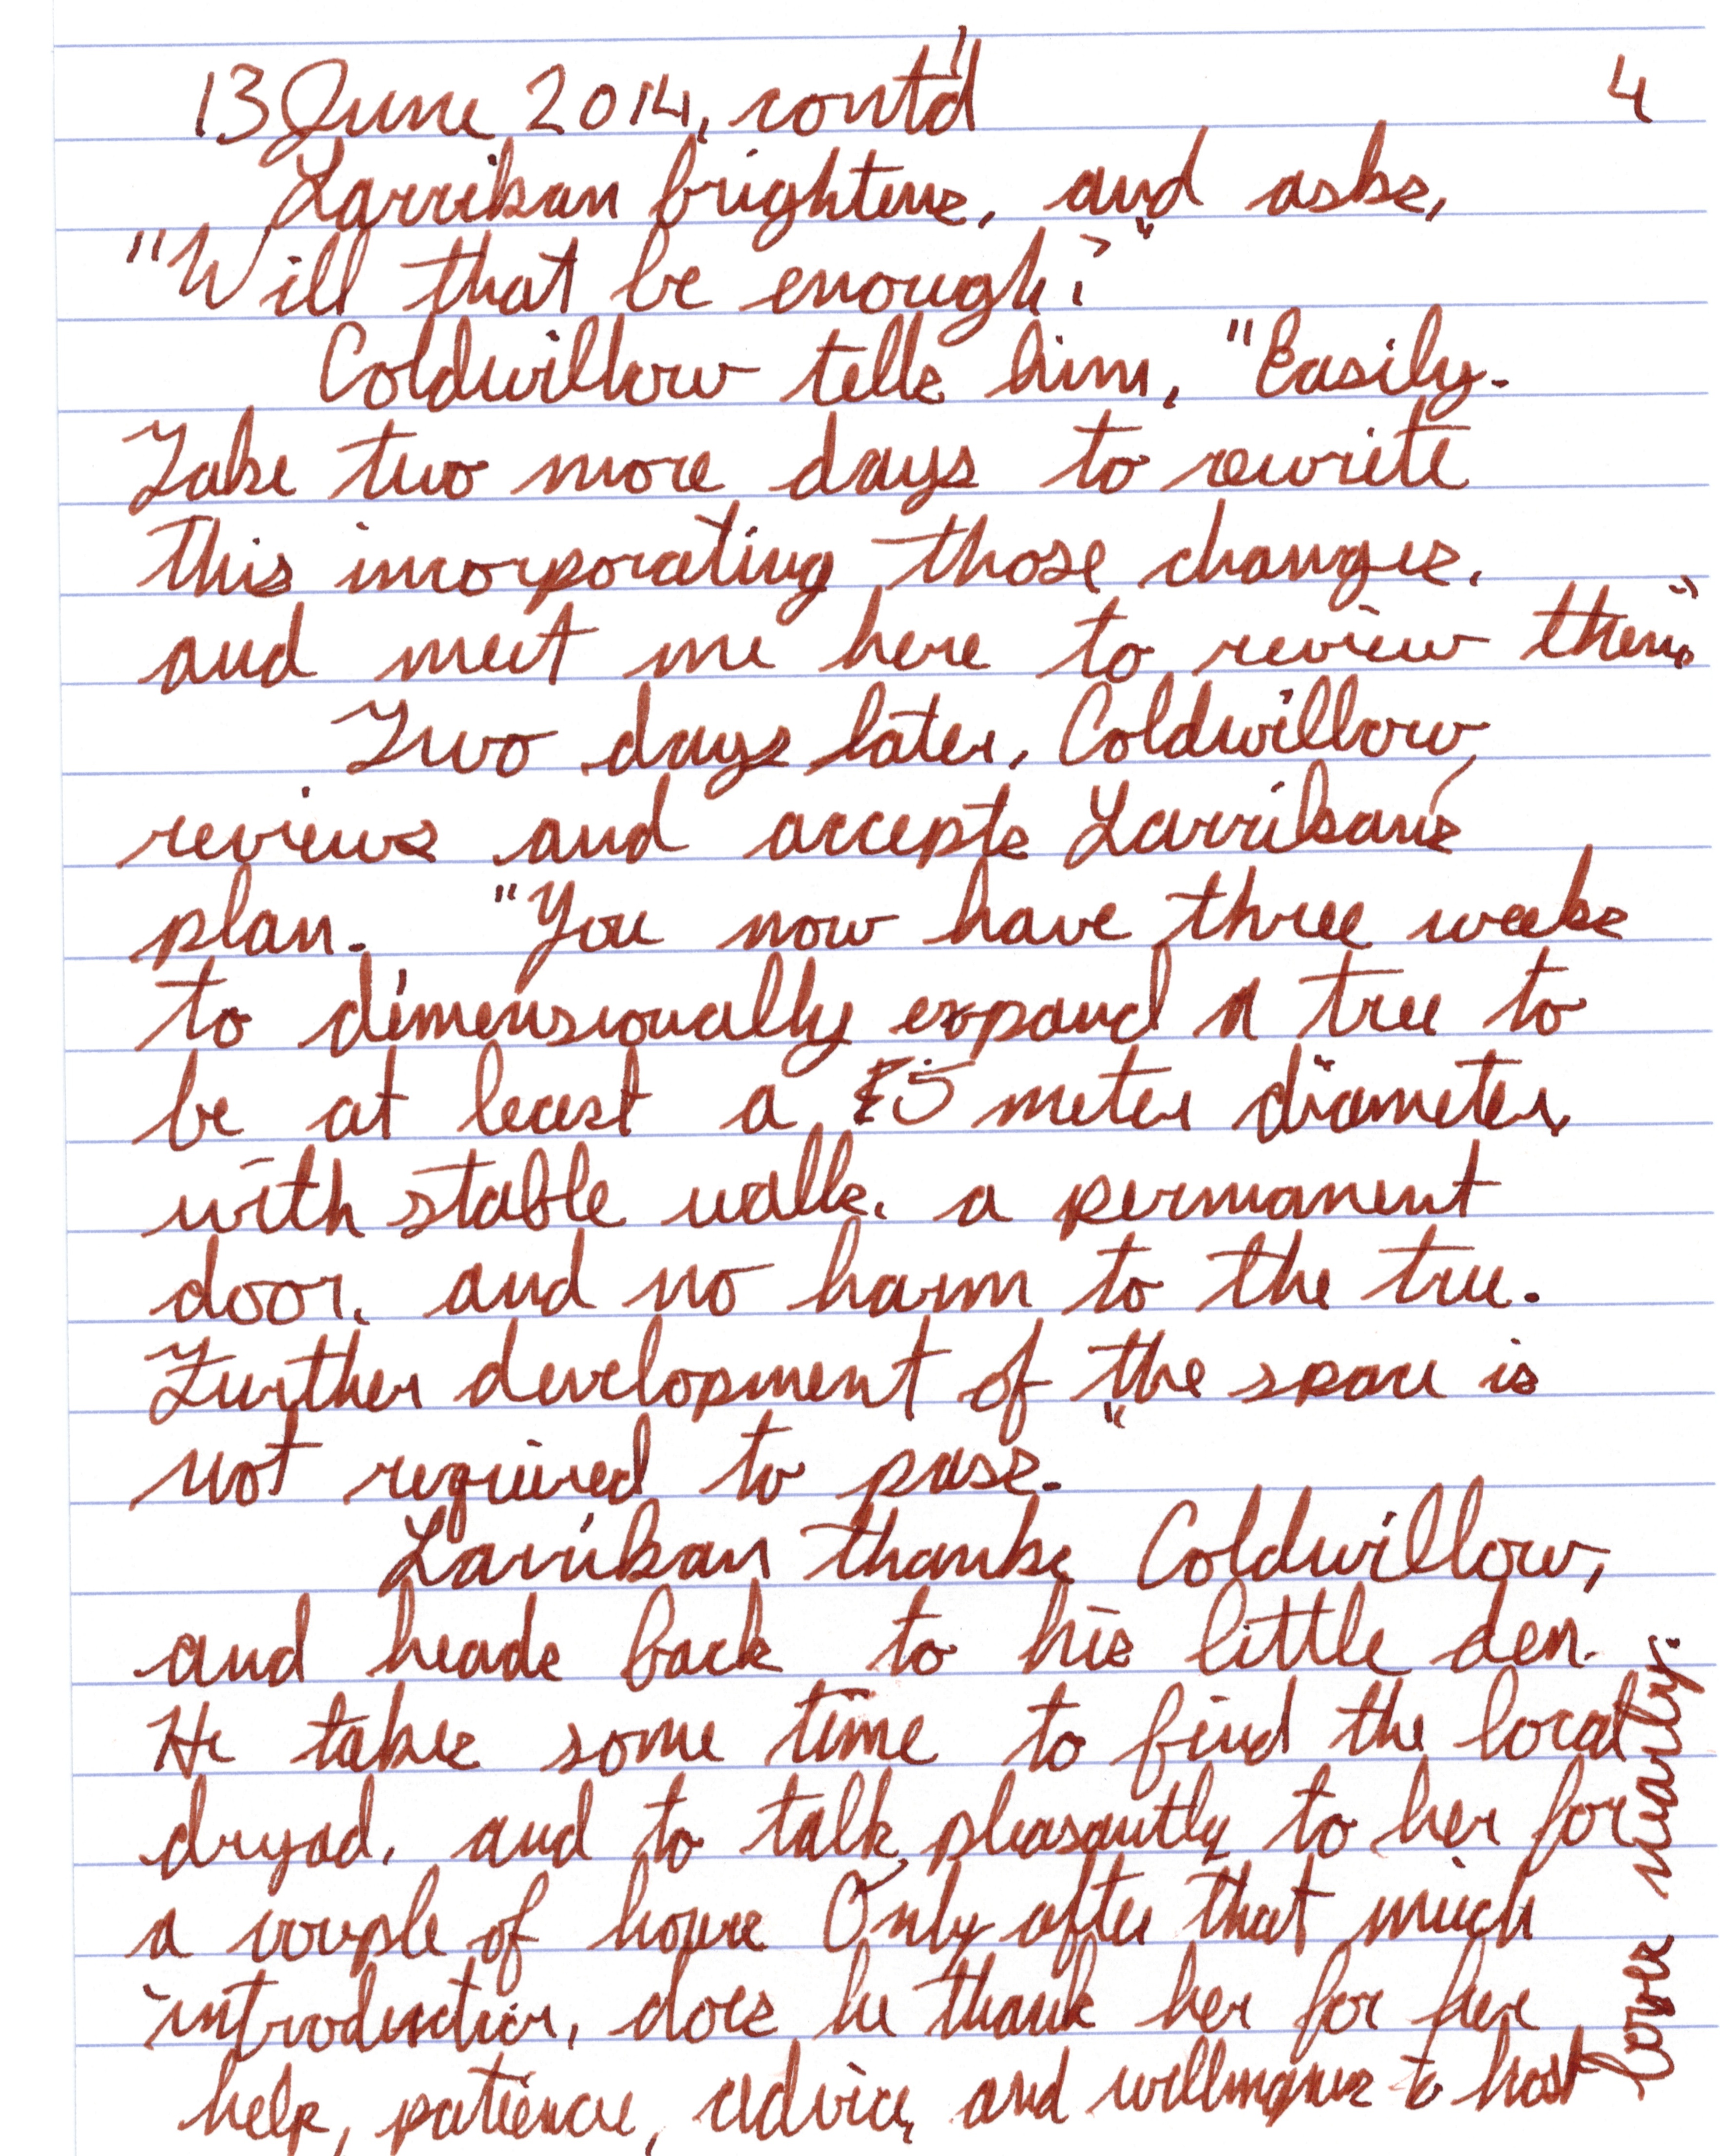 13 June 2014, cont'd 4
Larrikan brightens, and asks,
"Will that be enough?"
Coldwillow tells him, "Easily.
Take two more days to rewrite
this incorporating those changes,
and meet me here to review them."
Two days later, Coldwillow
reviews and accepts Larrikan's
plan. "You now have three weeks
to dimensionally expand a tree to
be at least a 5 meter diameter,
with stable walls, a permanent
door, and no harm to the tree.
Further development of the space is
not required to pass."
Larrikan thanks Coldwillow,
and heads back to his little den.
He takes some time to find the local
dryad, and to talk pleasantly to her for
a couple of hours Only after that much
introduction, does he thank her for her
help, patience, advice, and willingness to host
lovers nearby.